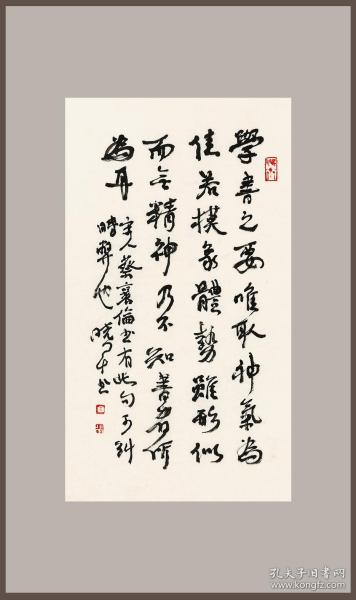 學書之要唯取神氣為
佳若摸象體勢雖形似
而無精神乃不知書者所
為耳
宋人蔡襄倫书有此句可糾
時弊也 曉
孔夫子旧书网
www.kongfz.com